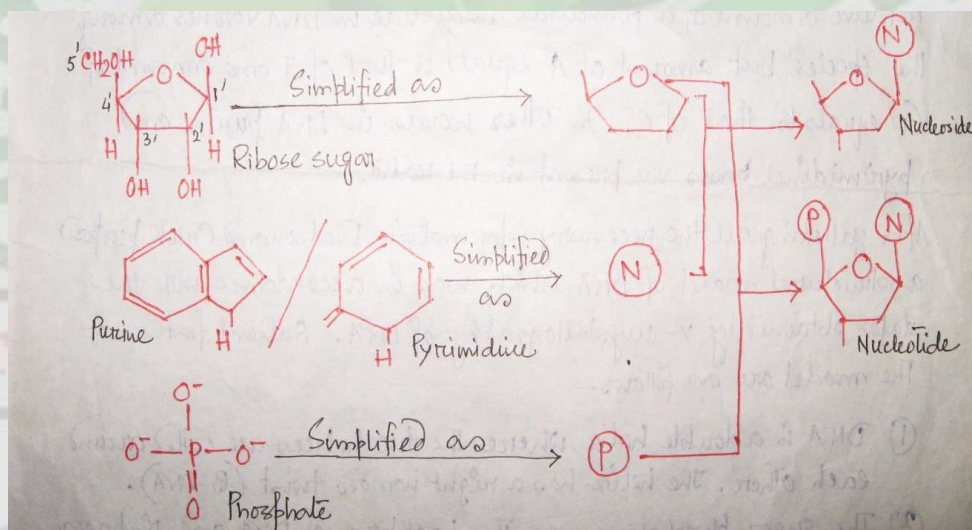 5' CH2OH
OH
O
4'
1'
H
3'
2'
H
OH
OH
Simplified as
Ribose sugar
O
N
O
Nucleoside
Purine
H
H
Pyrimidine
Simplified
as
N
P
N
O
Nucleotide
O-
O- P O-
O
Phosphate
Simplified as
P